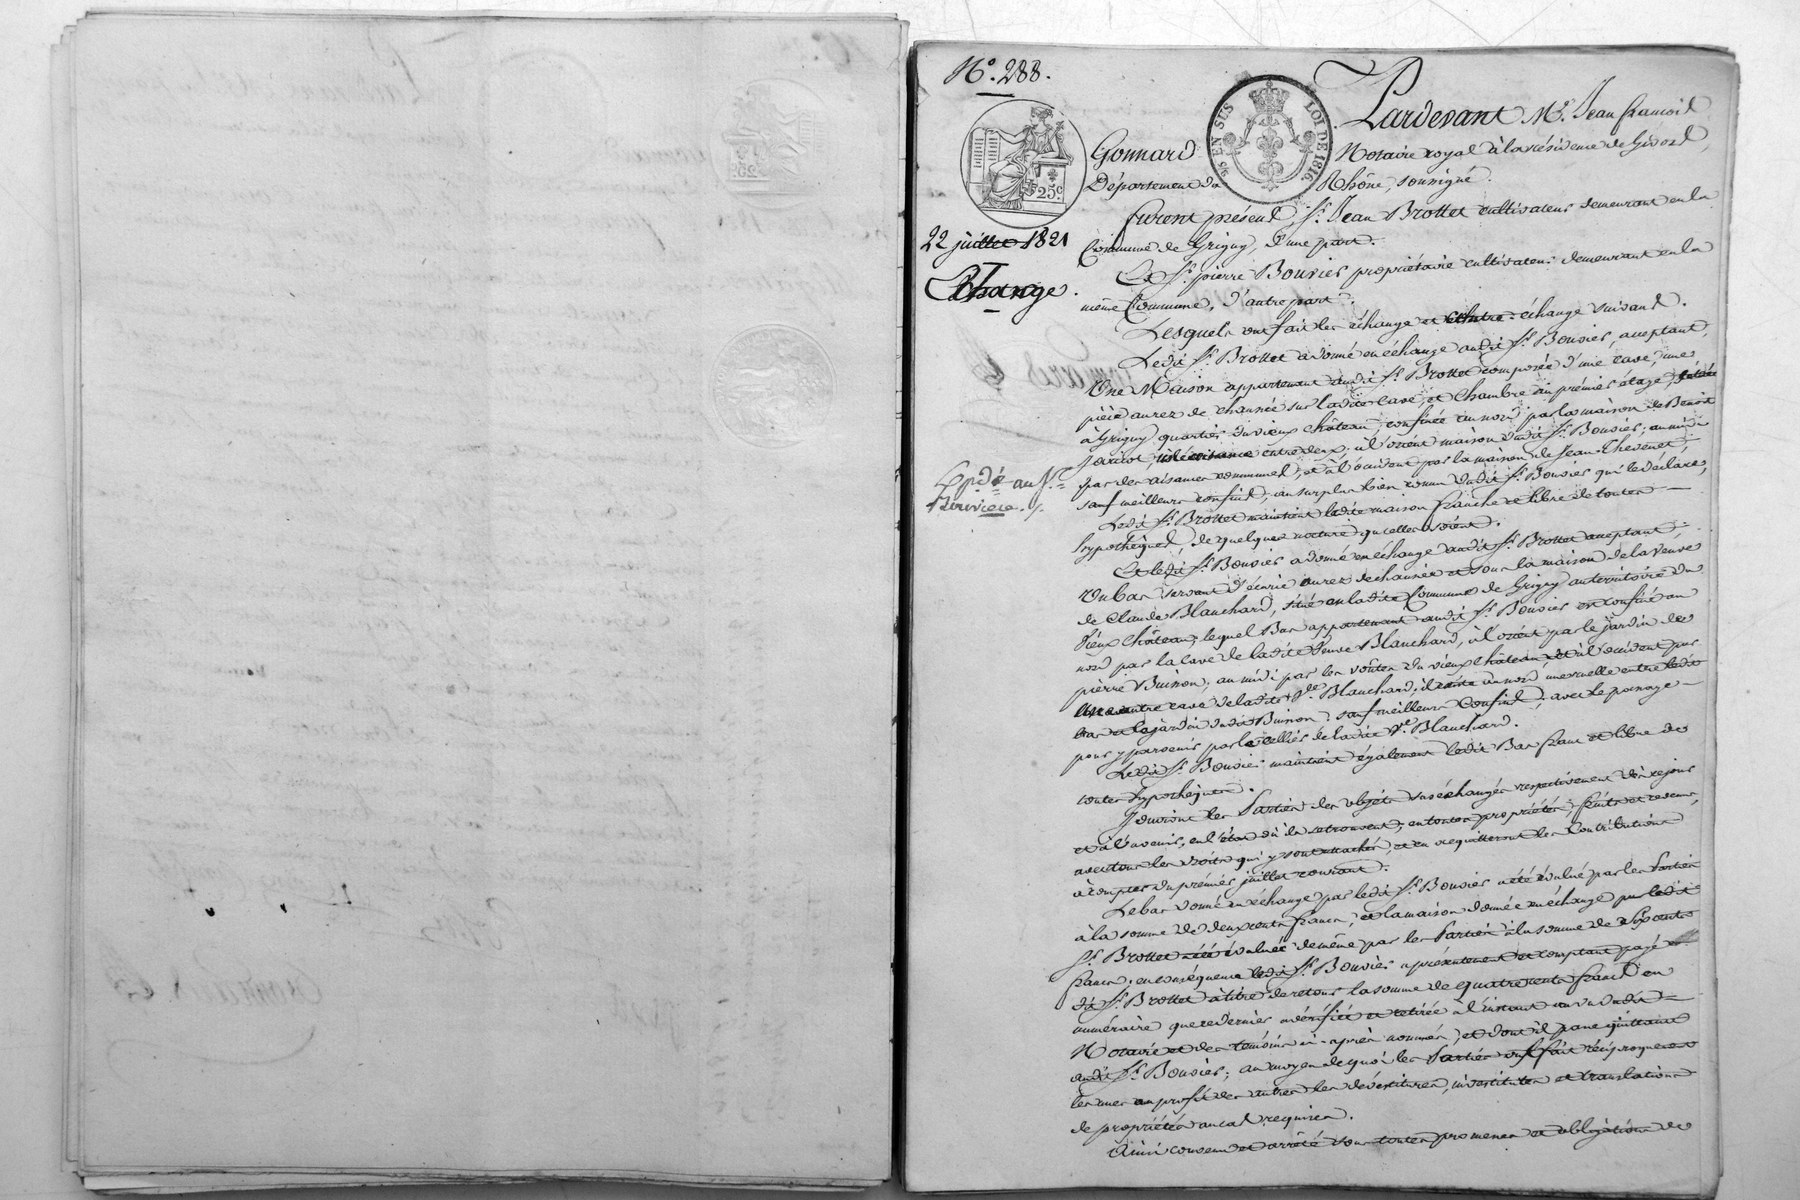 N.º 288.
25 c.
EN SUS
LOI DE 1816.
22 juillet 1821
Echange.
Expdié au Sr.
Bouvier
Pardevant Me. Jean françois
Gonnard Notaire royal à la résidence de Givors,
Département du Rhône, soussigné.
Furent présens, Sr. Jean Brottet cultivateur demeurant en la
Commune de Grigny, d'une part.
Et Sr. pierre Bouvier propriétaire cultivateur demeurant en la
même Commune, d'autre part.
Lesquels ont fait les échange et contre-échange suivans.
Ledit Sr. Brottet a donné en échange audit Sr. Bouvier, acceptant,
Une Maison appartenant audit Sr. Brottet composée d'une cave, une
pièce au rez de chaussée sur ladite cave, et Chambre au premier étage, située
à Grigny quartier du vieux Château, confinée au nord par la maison de Benoit
entre deux, à l'orient maison dudit Sr. Bouvier; au midi
par des aisances communes, et à l'occident par la maison de Jean Thevenet,
sauf meilleurs confins, au surplus bien connue dudit Sr. Bouvier qui le déclare,
Ledit Sr. Brottet maintient ladite maison franche et libre de toutes
hypothèques, de quelques nature qu'elles soient.
Et ledit Sr. Bouvier a donné en échange audit Sr. Brottet acceptant,
Un bas servant d'écurie au rez de chaussée et sous la maison de la veuve
de Claude Blanchard, situé en ladite Commune de Grigny au territoire du
Vieux Château, lequel Bas appartenant audit Sr. Bouvier est confiné au
nord par la cave de ladite Veuve Blanchard, à l'orient par le jardin de
pierre Buisson, au midi par les voûtes du vieux Château, et à l'occident par
une autre cave de ladite Ve. Blanchard, il existe au nord une ruelle entre ledit
bas et le jardin dudit Buisson, sauf meilleurs Confins, avec le passage
pour y parvenir par le cellier de ladite Ve. Blanchard.
Ledit Sr. Bouvier maintient également ledit Bas franc et libre de
toutes hypothèques.
Jouiront les Parties des objets susechangés respectivement dès ce jour
et à l'avenir, en l'état où ils se trouvent, en toutes propriétés, fruits et revenus,
avec tous les droits qui y sont attachés, et en acquitteront les Contributions
à compter du premier juillet courant.
Le bas donné en échange par ledit Sr. Bouvier a été évalué par les Parties
à la somme de deux cents francs, et la maison donnée en échange par ledit
Sr. Brottet a été évaluée de même par les Parties à la somme de six cents
francs, en conséquence ledit Sr. Bouvier a présentement et comptant payé au
dit Sr. Brottet à titre de retour la somme de quatre cents francs en
numéraire que ce dernier a vérifiée et retirée à l'instant au vu dudit
Notaire et des témoins ci-après nommés, et dont il passe quittance
audit Sr. Bouvier; au moyen de quoi les Parties ont fait réciproquement
les unes au profit des autres les dévestitures, investitures et translations
de propriétés au cas requises.
Ainsi convenu et arrêté sous toutes promesses et obligations de